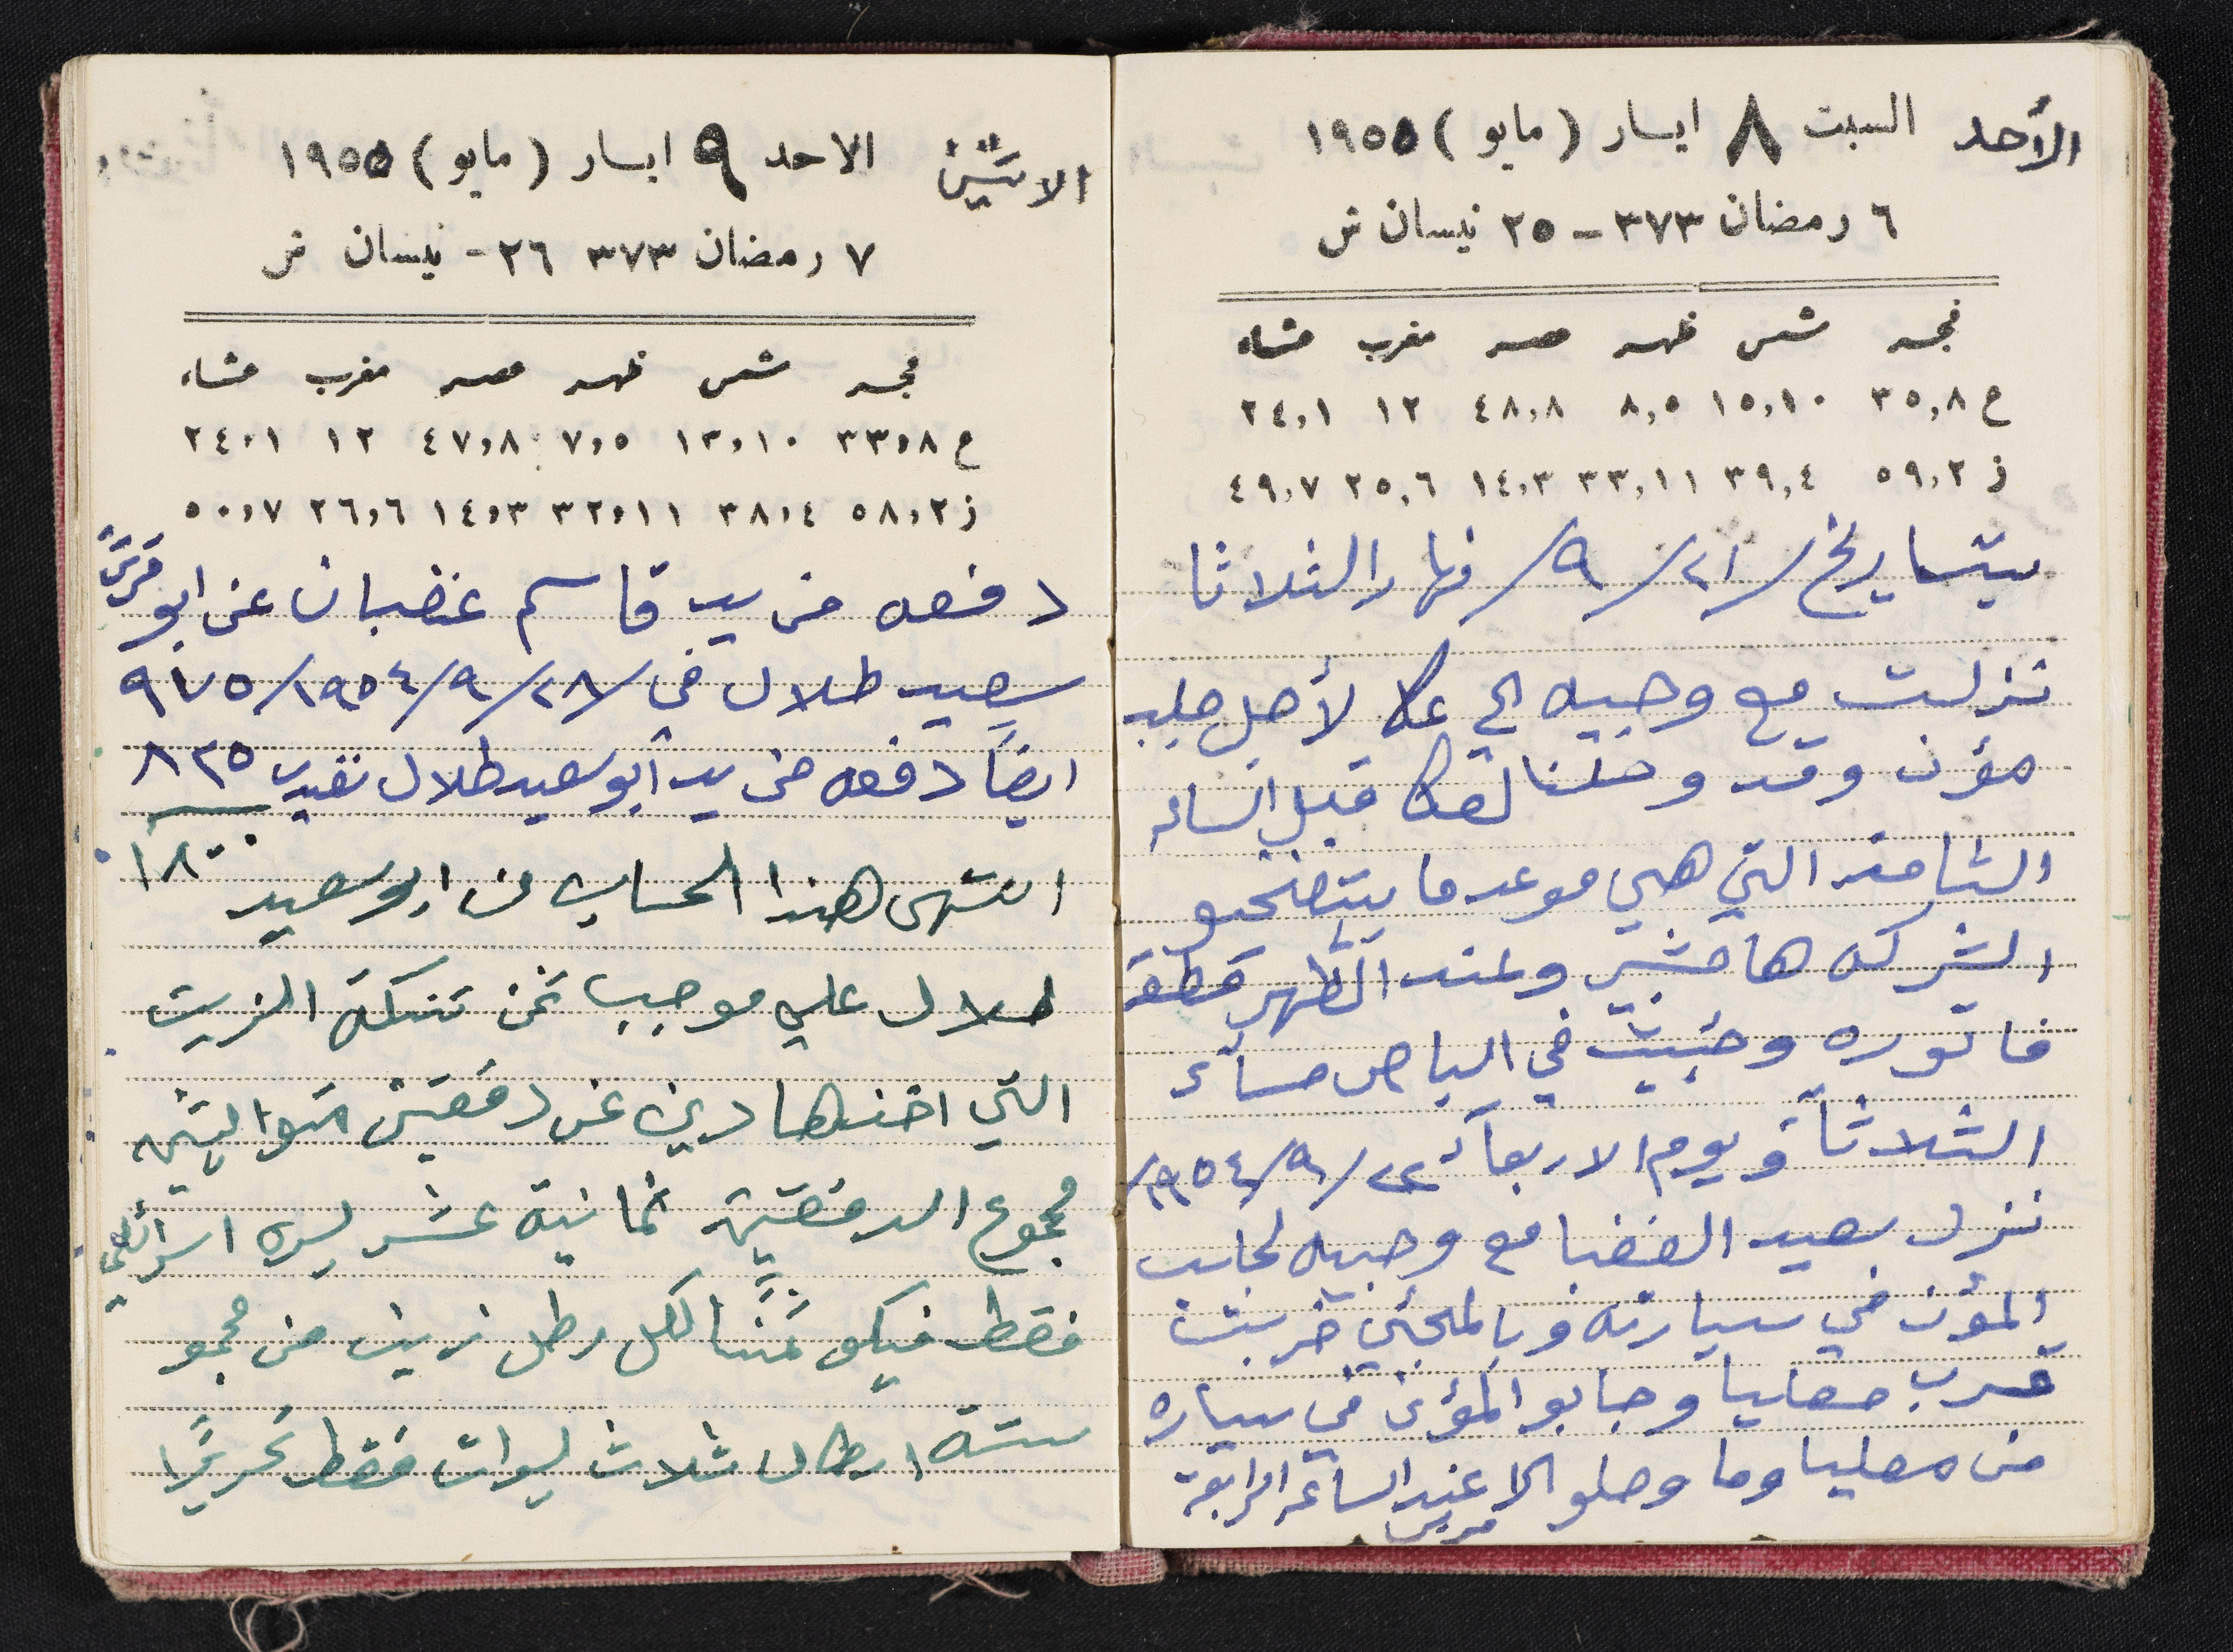 الأحد السبت ٨ ايار (مايو) ١٩٥٥
٦ رمضان ٣٧٣ - ٢٥ نيسان ش
فجر شمس ظهر عصر مغرب عشاء
ع ٣٥,٨ ١٥,١٠ ٨,٥ ٤٨,٨ ١٢ ٢٤,١
ز ٥٩,٢ ٣٩,٤ ٣٣,١١ ١٤,٣ ٢٥,٦ ٤٩,٧
بتاريخ /٢١/٩/ نهار الثلاثا
نزلت مع وجيه الى عكا لأجل جلب
مؤن وقد وصلنا لعكا قبل الساعه
الثامنه التي هي موعد ما بيتفتحو
الشركه هامشبير وعند الظهر قطعة
فاتوره وجيت في الباص مساءً
الثلاثا ويوم الاربعاء ٢٢/٩/١٩٥٤/
نزل سعيد الغضبا مع وجيه لجلب
المؤن في سيارته وبالمجئ خربت
قرب معليا وجابو المؤن في سياره
من معليا وما وصلو الا عند الساعه الرابعة
الاثنين الاحد ٩ ايار (مايو) ١٩٥٥
٧ رمضان ٣٧٣ ٢٦ - نيسان ش
فجر شمس ظهر عصر مغرب عشاء
ع ٣٣,٨ ١٣,١٠ ٧,٥ ٤٧,٨ ١٢ ٢٤,١
ز ٥٨,٢ ٣٨,٤ ٣٢,١١ ١٤,٣ ٢٦,٦ ٥٠,٧
دفعه من يد قاسم غضبان عن ابو
سعيد طلال في /٢٨/٩/١٩٥٤/ ٩١٧٥
ايضاً دفعه من يد ابو سعيد طلال نقدي ٨٢٥
انتهى هذا الحساب من ابو سعيد
طلال على موجب ثمن تنكة الزيت
التي اخذها دين عن دفعتين متواليتين
مجموع الدفعتين ثمانية عشر ليره اسرائيلي
فقط فيكو ثمننا لكل رطل زيت من مجمو
ستة ارطال ثلاث ليرات فقط تحريرًا